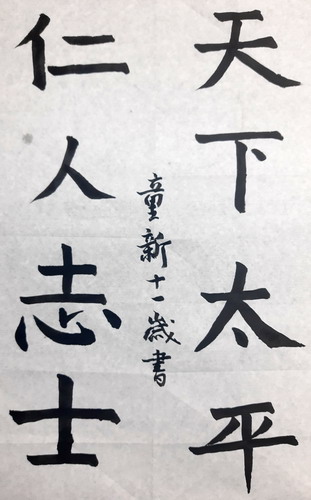 天下太平
仁人志士
童新十一歲書